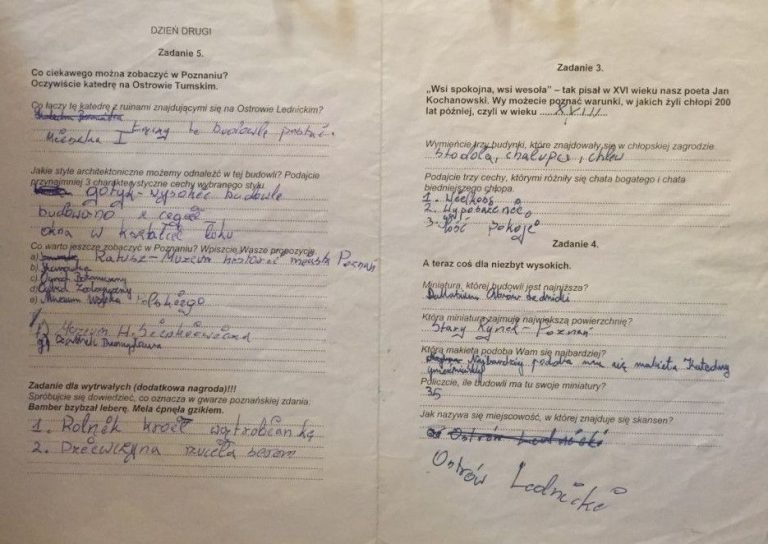 DZIEŃ DRUGI
Zadanie 5.
Co ciekawego można zobaczyć w Poznaniu?
Oczywiście katedrę na Ostrowie Tumskim.
Co łączy tę katedrę z ruinami znajdującymi się na Ostrowie Lednickim?
Mieszka I
Jakie style architektoniczne możemy odnaleźć w tej budowli? Podajcie
przynajmniej 3 charakterystyczne cechy wybranego stylu.
gotyk - wysokie budowle
budowano z cegieł
okna w kształcie łuku
Co warto jeszcze zobaczyć w Poznaniu? Wpiszcie Wasze propozycje
a) Ratusz - Muzeum historii miasta Poznań
b)
c) Ogród Botaniczny
d) Ogród Zoologiczny
e) Muzeum Wojska Polskiego
f) Muzeum H. Sienkiewicza
g)
Zadanie dla wytrwałych (dodatkowa nagroda)!!!
Spróbujcie się dowiedzieć, co oznacza w gwarze poznańskiej zdania:
Bamber bzybzał leberę. Mela ćpnęła gzikiem.
1. Rolnik kroił wątrobiankę
2. Dziewczyna rzuciła serem
Zadanie 3.
„Wsi spokojna, wsi wesoła” – tak pisał w XVI wieku nasz poeta Jan
Kochanowski. Wy możecie poznać warunki, w jakich żyli chłopi 200
lat później, czyli w wieku XVIII
Wymieńcie trzy budynki, które znajdowały się w chłopskiej zagrodzie.
stodoła, chałupa, chlew
Podajcie trzy cechy, którymi różniły się chata bogatego i chata
biedniejszego chłopa.
1. Wielkość
2. Wyposażenie
3. Ilość pokoi
Zadanie 4.
A teraz coś dla niezbyt wysokich.
Miniatura, której budowli jest najniższa?
Palatium Ostrów Lednicki
Która miniatura zajmuje największą powierzchnię?
Stary Rynek - Poznań
Która makieta podoba Wam się najbardziej?
Najbardziej podoba mi się makieta Katedry
gnieźnieńskiej
Policzcie, ile budowli ma tu swoje miniatury?
35
Jak nazywa się miejscowość, w której znajduje się skansen?
Ostrów Lednicki